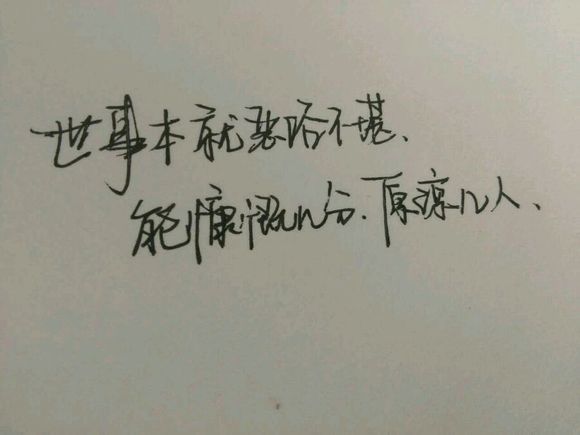 世事本就恶俗不堪、
能慷慨几分、原谅几人、